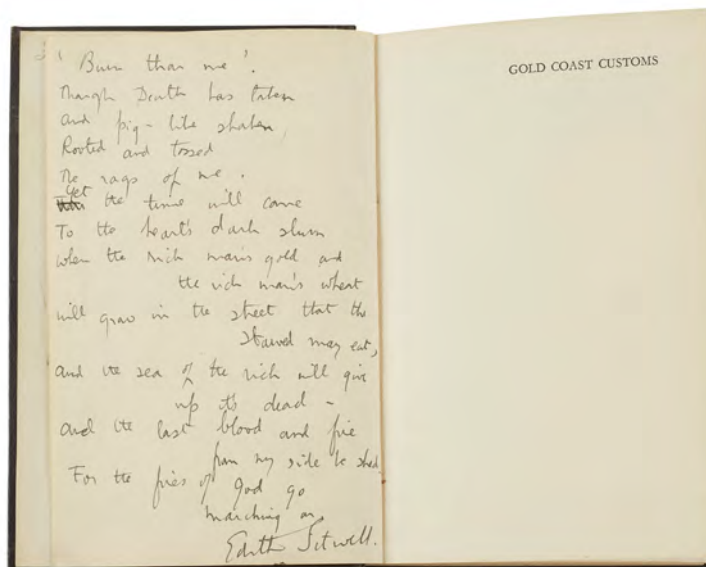 'Burn thou me'.
Though Death has taken
and pig-like shaken,
Rooted and tossed
The rags of me.
Yet the time will come
To the heart's dark slum
when the rich man's gold and
the rich man's wheat
will grow in the street that the
starved may eat,
and the sea of the rich will give
up its dead –
and the last blood and fire
from my side be shed.
For the fires of God go
marching on,
Edith Sitwell.
GOLD COAST CUSTOMS